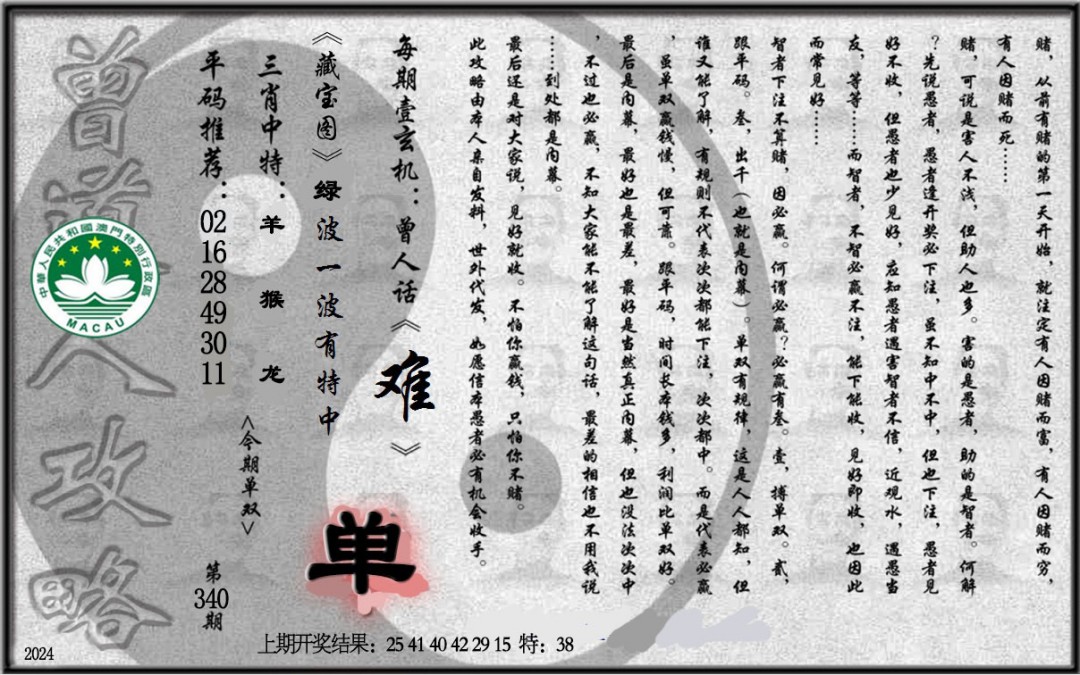 赌，从前有赌的第一天开始，就注定有人因赌而富，有人因赌而穷，
有人因赌而死……
赌，可说是害人不浅，但助人也多。害的是愚者，助的是智者。何解
？先说愚者，愚者逢开奖必下注，虽不知中不中，但也下注，愚者见
好不收，但愚者也少见好，应知愚者遇害智者不信，近观水，遇愚当
友，等等……而智者，不智必赢不注，能下能收，见好即收，也因此
而常见好……
智者下注不算赌，因必赢。何谓必赢？必赢有叁。壹，搏单双。贰，
跟平码。叁，出千（也就是内幕）。单双有规律，这是人人都知，但
谁又能了解，有规则不代表次次都能下注，次次都中。而是代表必赢
，虽单双赢钱慢，但可靠。跟平码，时间长本钱多，利润比单双好。
最后是内幕，最好也是最差，最好是当然真正内幕，但也没法次次中
，不过也必赢，不知大家能不能了解这句话，最差的相信也不用我说
……到处都是内幕。
最后还是对大家说，见好就收。不怕你赢钱，只怕你不赌。
此攻略由本人亲自发料，世外代发，如愿信本愚者必有机会收手。
每期壹玄机：曾人话《难》
《藏宝图》绿波一波有特中
单
三肖中特：羊 猴 龙
<今期单双>
平码推荐：02 16 28 49 30 11
第340期
曾道人攻略
中華人民共和國澳門特別行政區
MACAU
上期开奖结果：25 41 40 42 29 15 特：38
2024